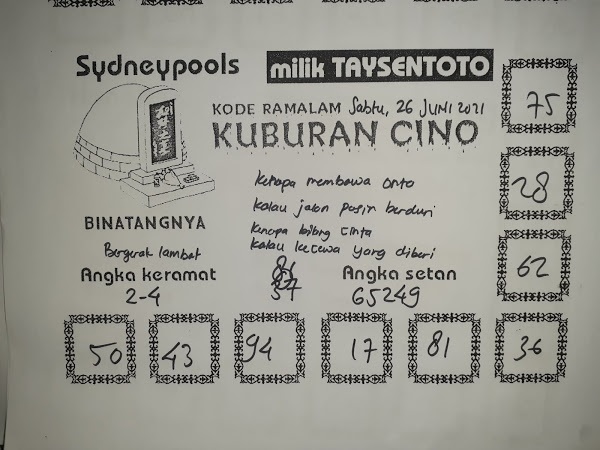 Sydneypools
milik TAYSENTOTO
KODE RAMALAM Sabtu, 26 JUNI 2021
KUBURAN CINO
75
Kenapa membawa onto
kalau jalan pasir berduri
28
BINATANGNYA
Kenapa bilang cinta
kalau kecewa yang diberi
Bergerak lambat
62
Angka keramat
2-4
57
Angka setan
65249
50 43 94 17 81 36